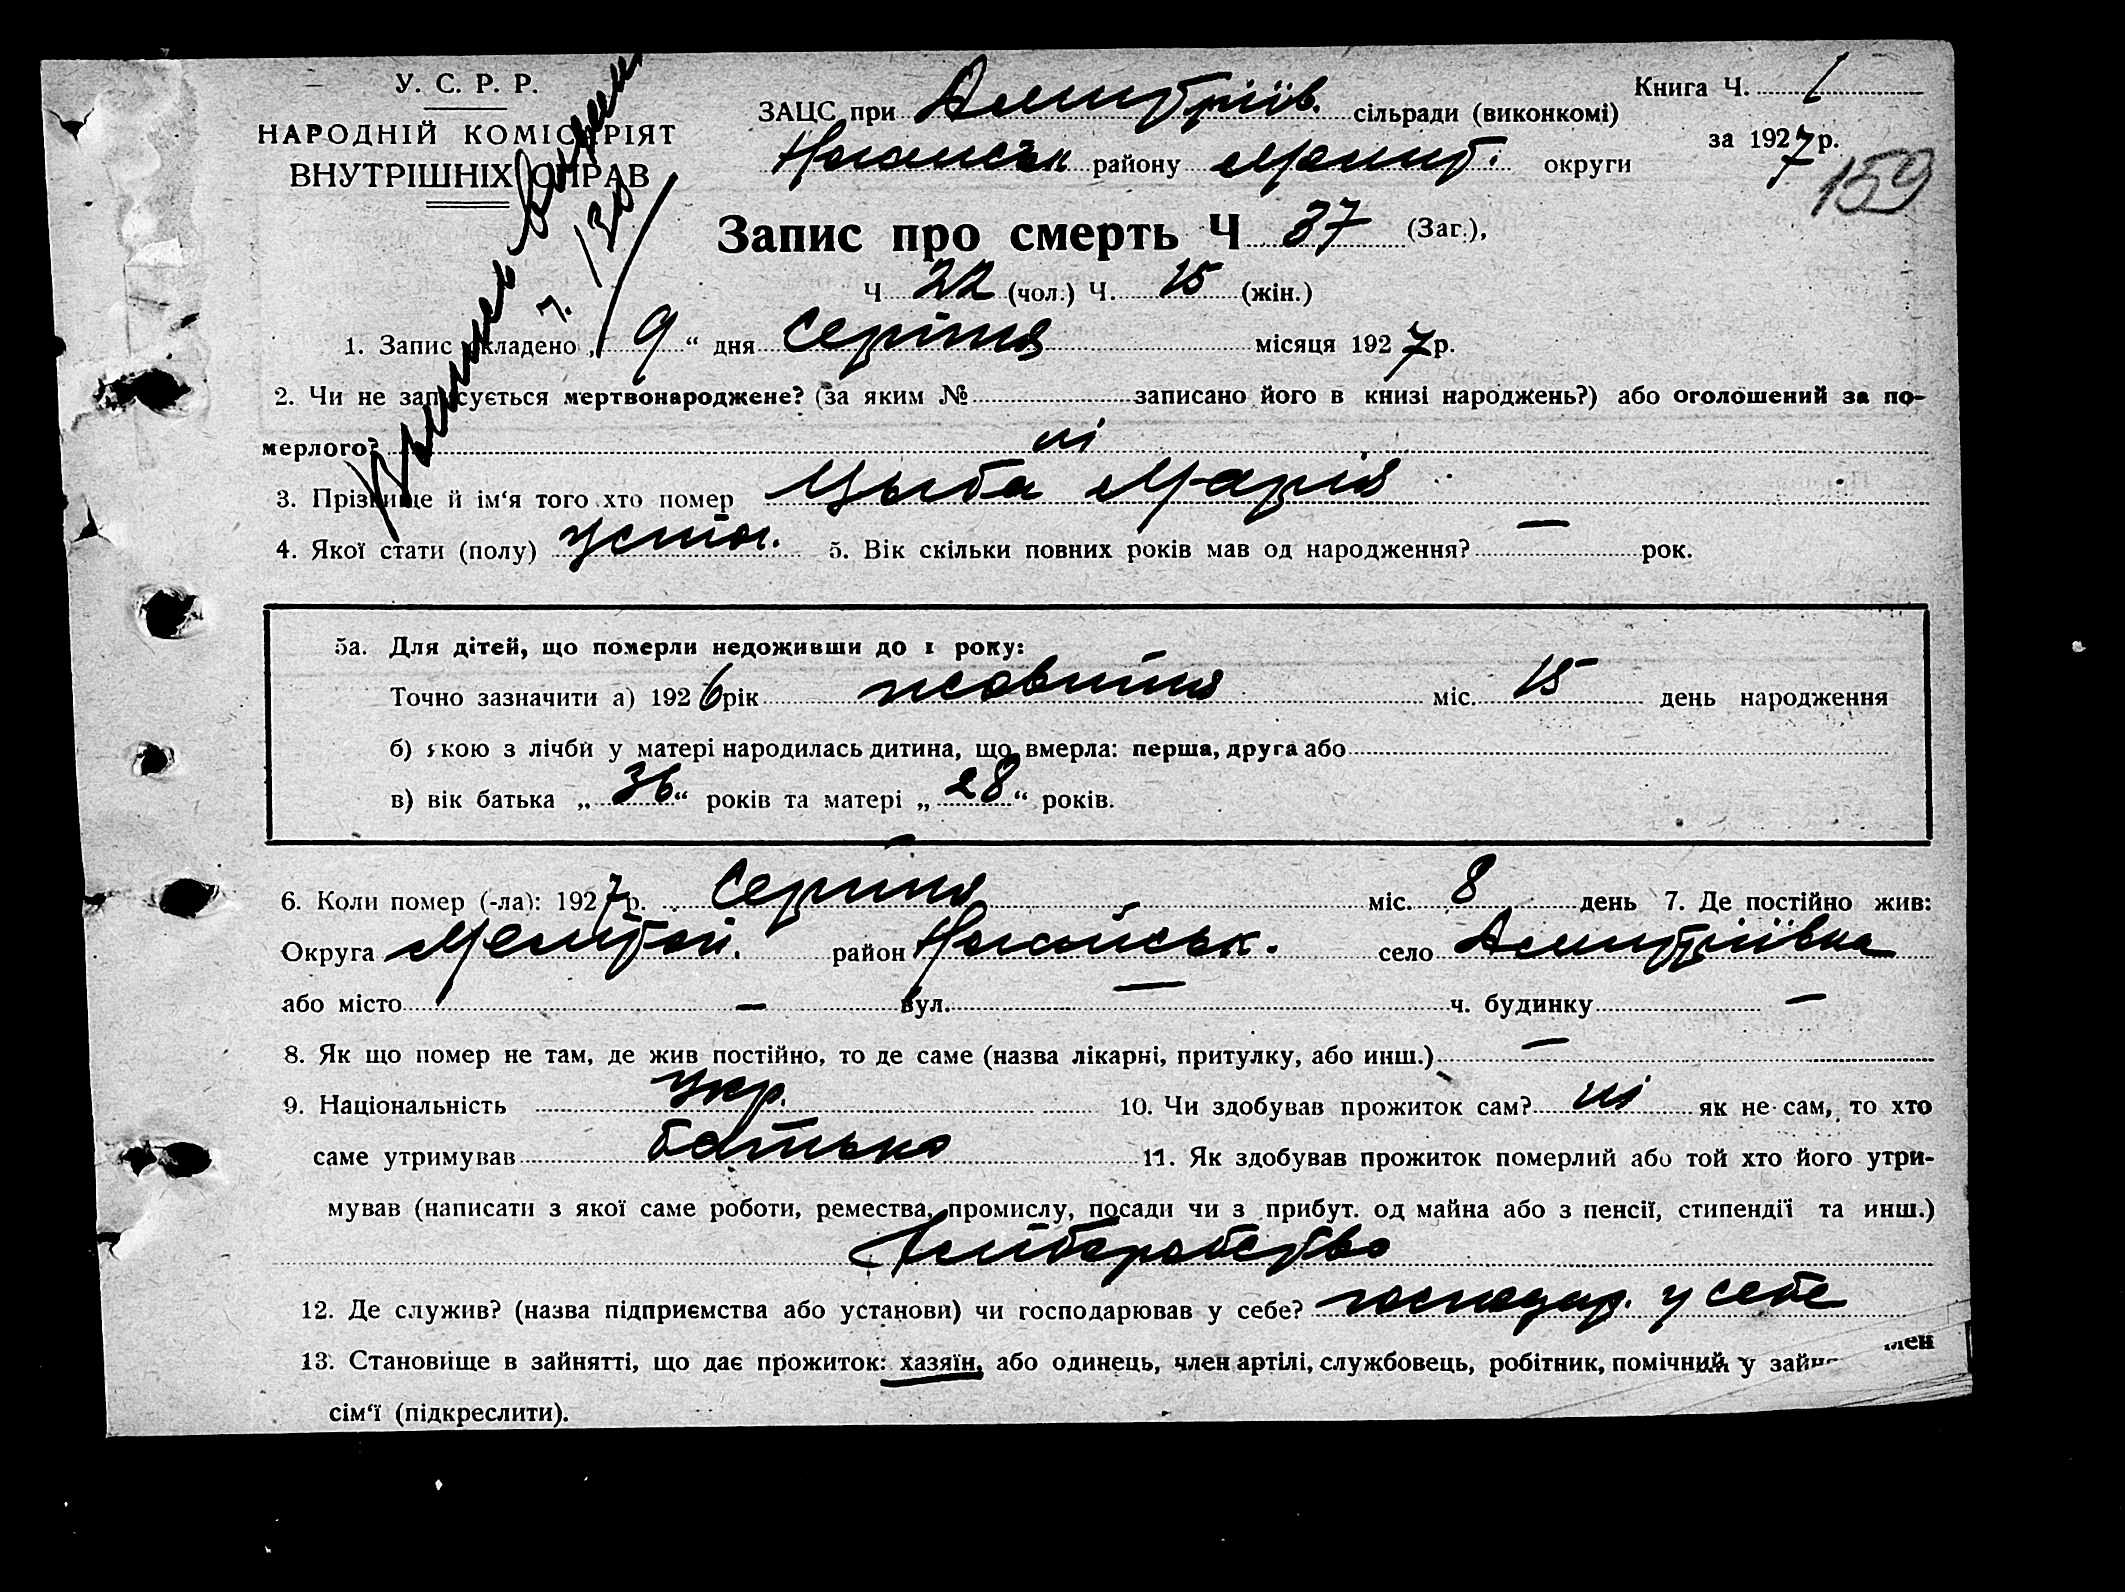 У. С. Р. Р.
НАРОДНІЙ КОМІСАРІЯТ
ВНУТРІШНІХ СПРАВ
ЗАЦС при Дмитріїв. сільради (виконкомі)
Ногайськ району Мелит. округи
Книга Ч. 1
за 1927 р.
159
Запис про смерть Ч 37 (Заг.),
Ч 22 (чол.) Ч. 15 (жін.)
1. Запис складено „ 9 “ дня серпня місяця 1927 р.
2. Чи не записується мертвонароджене? (за яким № записано його в книзі народжень?) або оголошений за по-
мерлого? ні
3. Прізвище й ім‘я того хто помер Цыба Марія
4. Якої стати (полу) 5. Вік скільки повних років мав од народження? — рок.
5а. Для дітей, що померли недоживши до 1 року:
Точно зазначити а) 1926 рік жовтня міс. 15 день народження
б) якою з лічби у матері народилась дитина, що вмерла: перша, друга або
в) вік батька „ 36 “ років та матері „ 28 “ років.
6. Коли помер (-ла): 1927 р. Серпня міс. 8 день 7. Де постійно жив:
Округа Мелітоп. район Ногайськ. село Дмитріївка
або місто — вул. — ч. будинку —
8. Як що помер не там, де жив постійно, то де саме (назва лікарні, притулку, або инш.) —
9. Національність Укр. 10. Чи здобував прожиток сам? ні як не сам, то хто
саме утримував батько 11. Як здобував прожиток померлий або той хто його утри-
мував (написати з якої саме роботи, ремества, промислу, посади чи з прибут. од майна або з пенсії, стипендії та инш.)
Хліборобство
12. Де служив? (назва підприємства або установи) чи господарював у себе? господар. у себе
13. Становище в зайнятті, що дає прожиток: хазяїн, або одинець, член артілі, службовець, робітник, помічний у
сім‘ї (підкреслити).